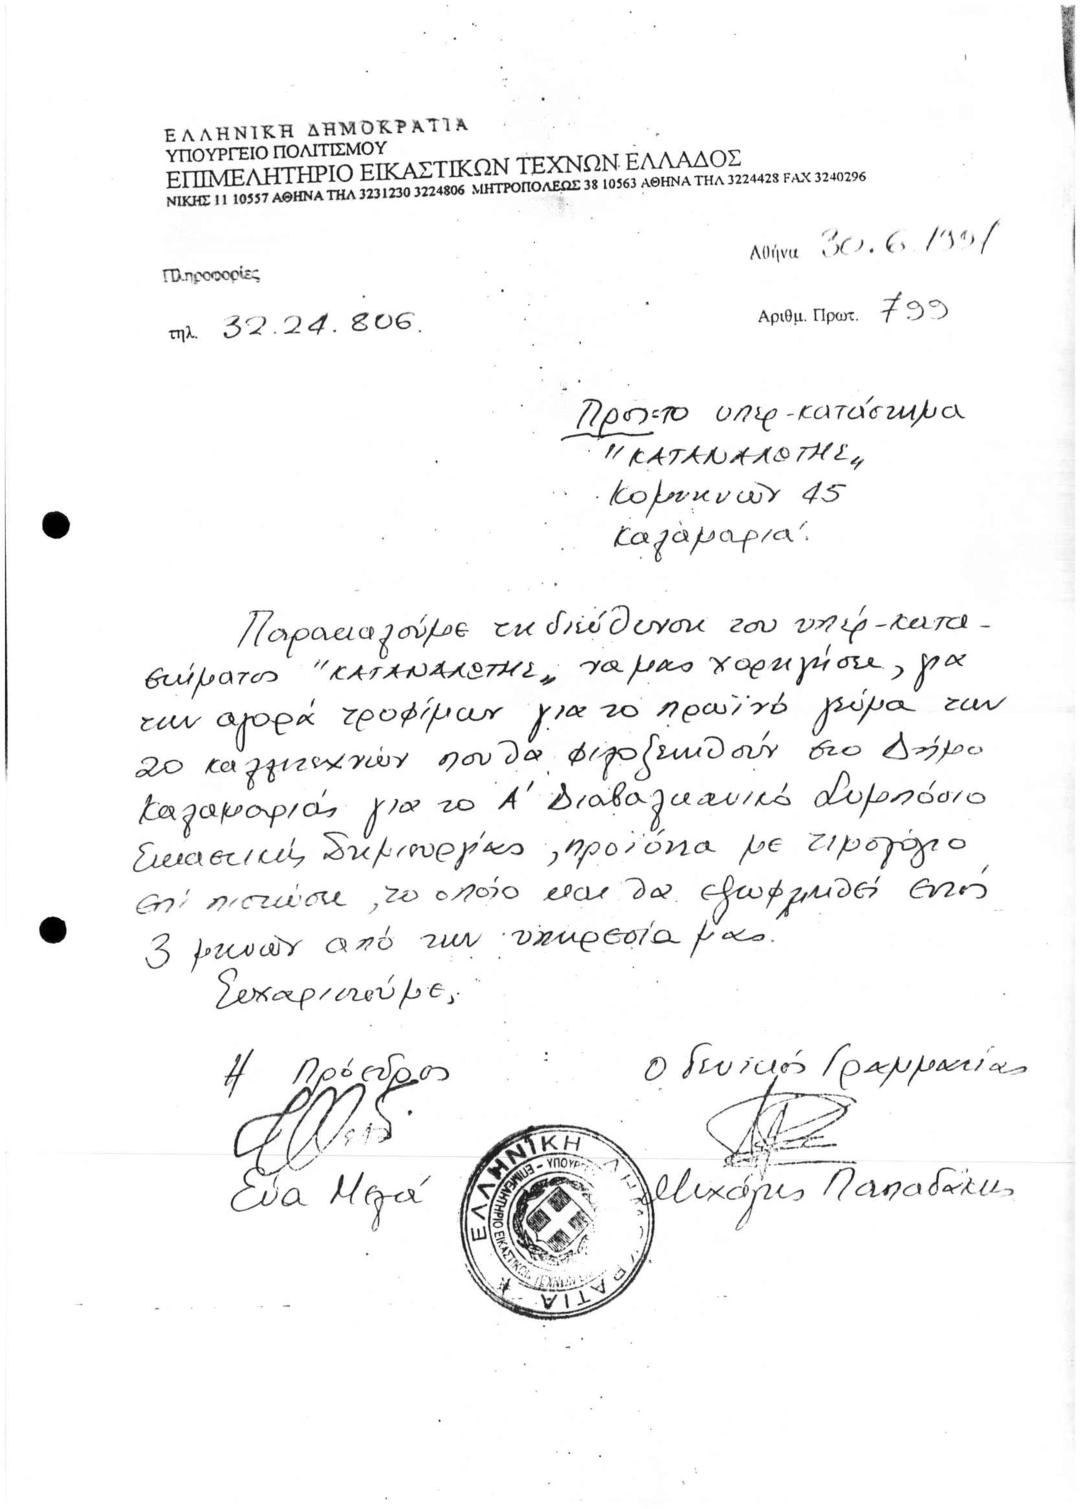 ΕΛΛΗΝΙΚΗ ΔΗΜΟΚΡΑΤΙΑ
ΥΠΟΥΡΓΕΙΟ ΠΟΛΙΤΙΣΜΟΥ
ΕΠΙΜΕΛΗΤΗΡΙΟ ΕΙΚΑΣΤΙΚΩΝ ΤΕΧΝΩΝ ΕΛΛΑΔΟΣ
ΝΙΚΗΣ 11 10557 ΑΘΗΝΑ ΤΗΛ 3231230 3224806 ΜΗΤΡΟΠΟΛΕΩΣ 38 10563 ΑΘΗΝΑ ΤΗΛ 3224428 FAX 3240296
Αθήνα 30.6.1991
Πληροφορίες
Αριθμ. Πρωτ. 799
τηλ. 32.24.806.
Προς: το υπερ-κατάστημα
"ΚΑΤΑΝΑΛΩΤΗΣ„
Κομνηνών 45
Καλαμαριά.
Παρακαλούμε τη διεύθυνση του υπερ-κατα-
στήματος "ΚΑΤΑΝΑΛΩΤΗΣ„ να μας χορηγήσει, για
την αγορά τροφίμων για το πρωϊνό γεύμα των
20 καλλιτεχνών που θα φιλοξενηθούν στο Δήμο
Καλαμαριάς για το Α' Διαβαλκανικό Συμπόσιο
Εικαστικής Δημιουργίας, προϊόντα με τιμολόγιο
επί πιστώσει, το οποίο και θα εξωφληθεί εντός
3 μηνών από την υπηρεσία μας.
Ευχαριστούμε,
Η Πρόεδρος
Ο Γενικός Γραμματέας
Εύα Μελά
Μιχάλης Παπαδάκης
ΕΛΛΗΝΙΚΗ ΔΗΜΟΚΡΑΤΙΑ
ΕΠΙΜΕΛΗΤΗΡΙΟ ΕΙΚΑΣΤΙΚΩΝ ΤΕΧΝΩΝ